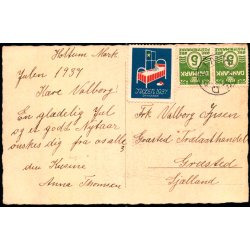 Holtum Mark
Julen 1937
Kære Valborg!
En glædelig Jul
og et godt Nytaar
ønskes dig fra os alle
din Kusine
Anna Thomsen
JULEN 1937
DANMARK
5
DANMARK
5
Frk Valborg
Grøsted Frølasthandel
Græsted
Sjælland